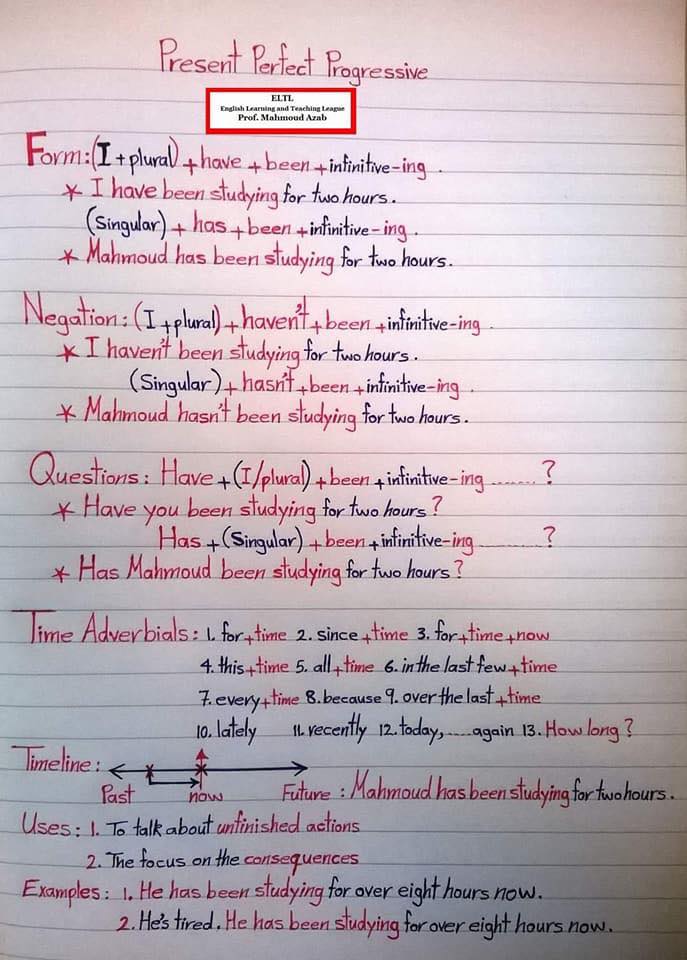 Present Perfect Progressive
ELTL
English Learning and Teaching League
Prof. Mahmoud Azab
Form: (I + plural) + have + been + infinitive-ing.
* I have been studying for two hours.
(Singular) + has + been + infinitive-ing.
* Mahmoud has been studying for two hours.
Negation: (I + plural) + haven't + been + infinitive-ing.
* I haven't been studying for two hours.
(Singular) + hasn't + been + infinitive-ing.
* Mahmoud hasn't been studying for two hours.
Questions: Have + (I/plural) + been + infinitive-ing ........?
* Have you been studying for two hours?
Has + (Singular) + been + infinitive-ing ........?
* Has Mahmoud been studying for two hours?
Time Adverbials: 1. for + time 2. since + time 3. for + time + now
4. this + time 5. all + time 6. in the last few + time
7. every + time 8. because 9. over the last + time
10. lately 11. recently 12. today, .....again 13. How long?
Timeline:
Past now Future : Mahmoud has been studying for two hours.
Uses: 1. To talk about unfinished actions
2. The focus on the consequences
Examples: 1. He has been studying for over eight hours now.
2. He's tired. He has been studying for over eight hours now.